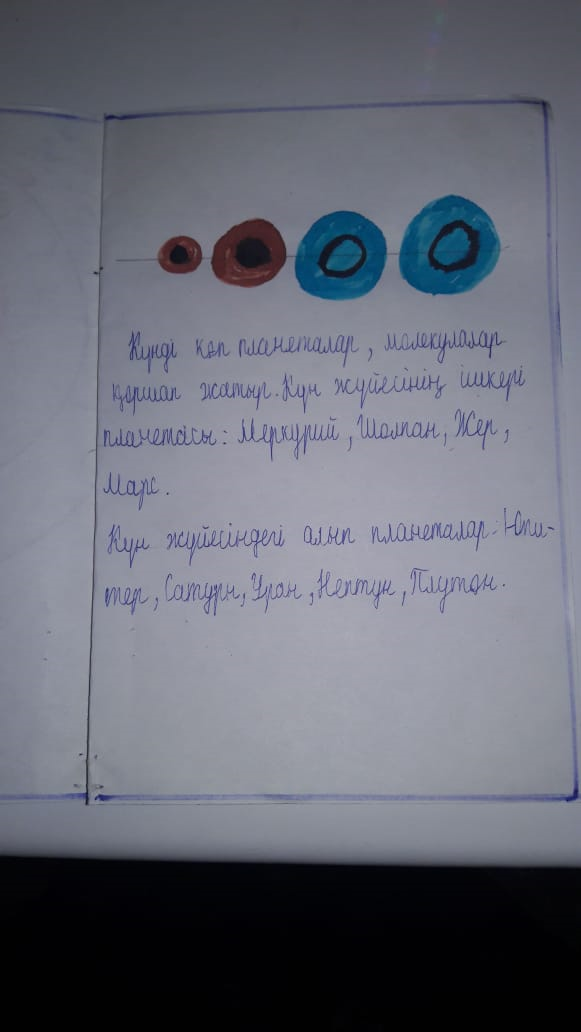 Күнді көп планеталар, молекулалар
қоршап жатыр. Күн жүйесінің ішкері
планетасы: Меркурий, Шолпан, Жер,
Марс.
Күн жүйесіндегі алып планеталар: Юпи-
тер, Сатурн, Уран, Нептун, Плутон.